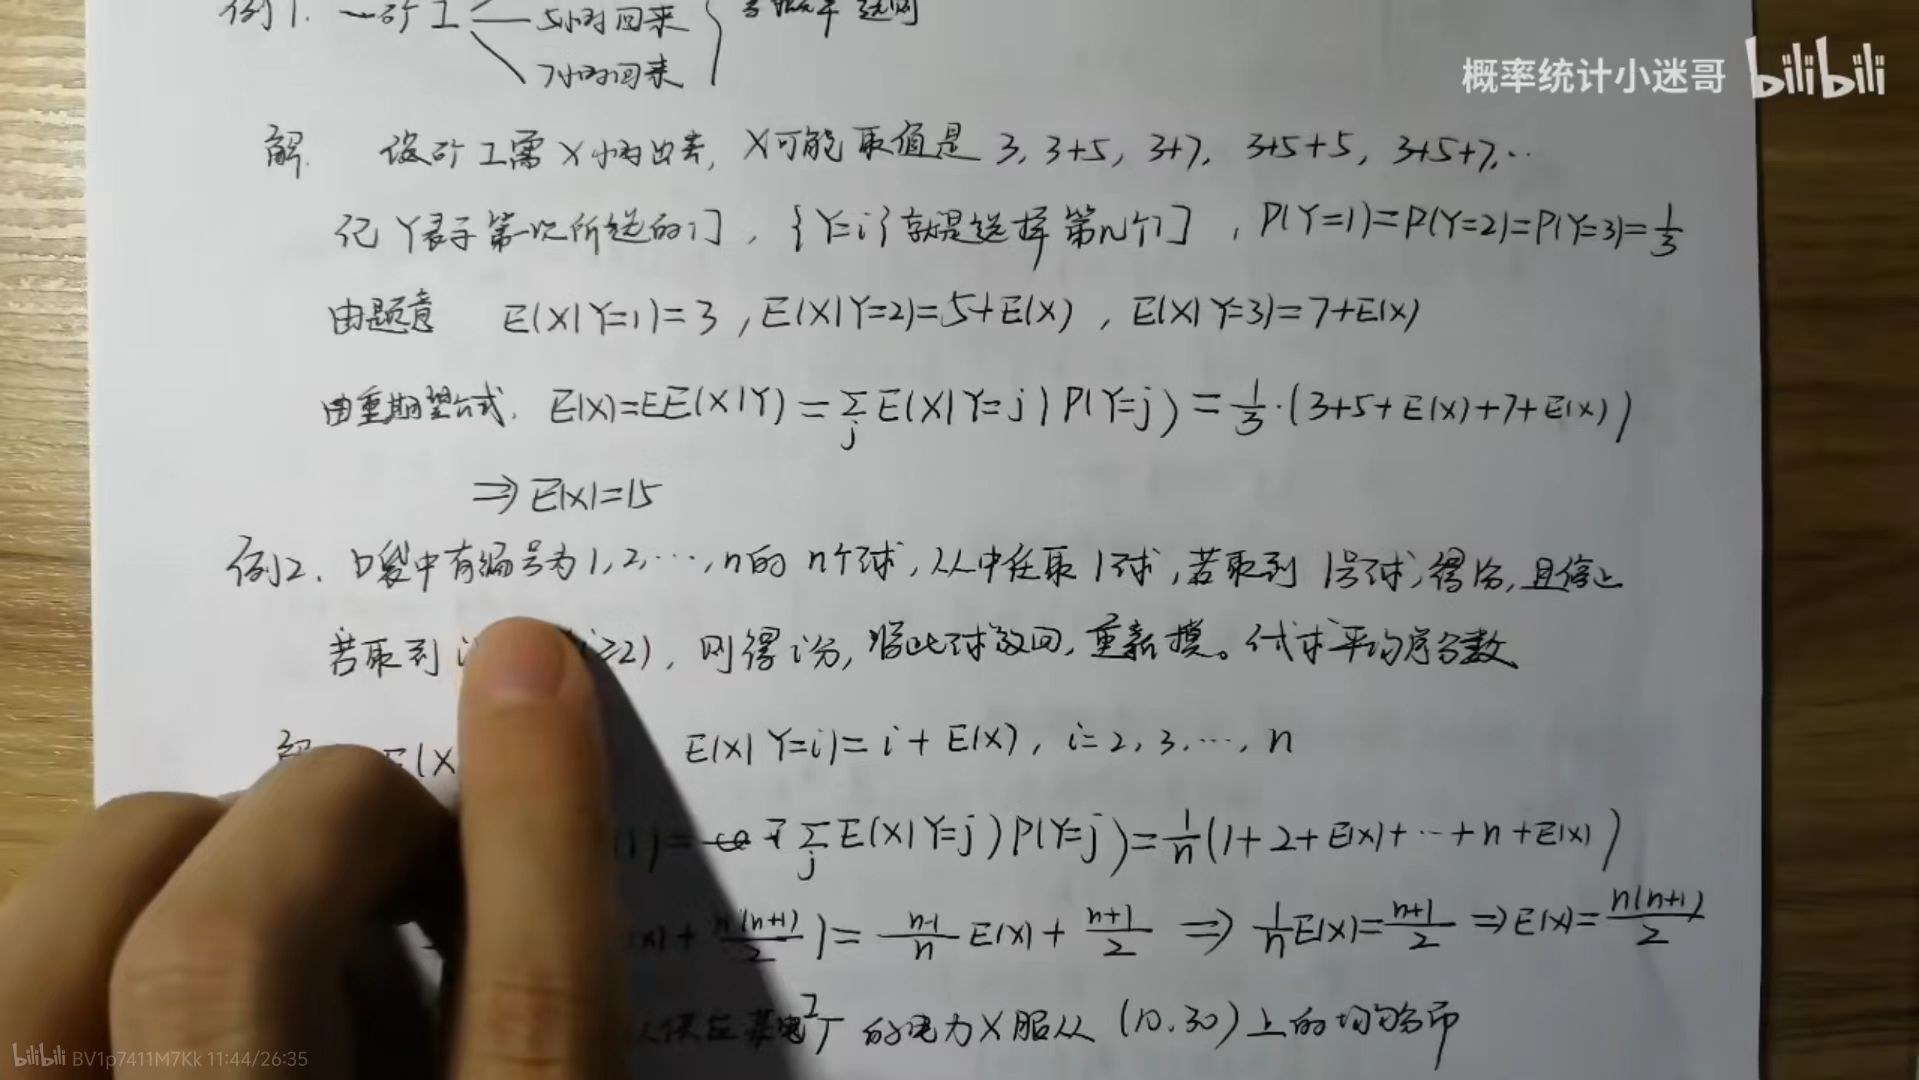 例1. 一矿工 5小时回来
7小时回来
概率统计小迷哥 bilibili
解. 设矿工需X小时出去, X可能取值是 3, 3+5, 3+7, 3+5+5, 3+5+7,…
记Y表示第一次所选的门, {Y=i}就是选择第i个门, P(Y=1)=P(Y=2)=P(Y=3)=1/3
由题意 E(X|Y=1)=3, E(X|Y=2)=5+E(X), E(X|Y=3)=7+E(X)
由重期望公式. E(X)=EE(X|Y)=∑_j E(X|Y=j)P(Y=j)=1/3·(3+5+E(X)+7+E(X))
⇒E(X)=15
例2. 口袋中有编号为1,2,…,n的n个球, 从中任取1球, 若取到1号球, 得1分, 且停止
若取到 i≥2), 则得i分, 将此球放回, 重新摸。试求平均得分数
解 E(X E(X|Y=i)=i+E(X), i=2,3,…,n
=∑_j E(X|Y=j)P(Y=j)=1/n(1+2+E(X)+…+n+E(X))
(X)+n(n+1)/2)=n-1/n E(X)+n+1/2 ⇒ 1/n E(X)=n+1/2 ⇒E(X)=n(n+1)/2
供应某电厂的电力X服从(10.30)上的均匀分布
bilibili BV1p7411M7Kk 11:44/26:35